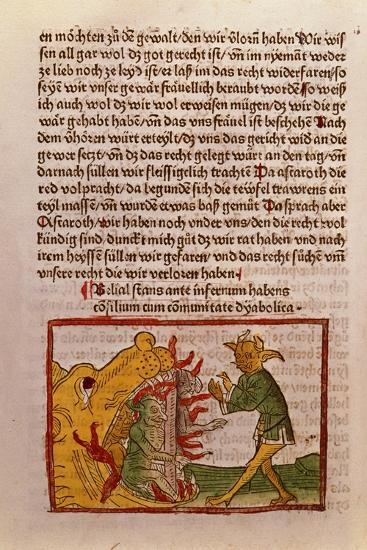 en möchten zů dē gewalt/den wir v̈lorn̄ haben Wir wis
sen all gar wol dz got gerecht ist/ vn̄ im nyemāt weder
ze lieb noch ze leyd ist/er laß im das recht widerfaren/so
seyē wir vnser gewär fräuellich beraubt wordē so weiß
ich auch wol dz wir wol erweisen mügen/dz wir die ge
wär gehabt haben/vn̄ das vns fräuel ist beschehē Nach
dem v̈hören würt erteylt/dz vns das gericht wid an die
gewer setzt/vn̄ dz das recht gelegt würt an den tag/vn̄
darnach süllen wir fleissigklich trachten Da astaroth die
red volpracht/da begundē sich die teüfel trawrens ein
teyl massen/ vn̄ wurdē etwas baß gemüt Da sprach aber
Astaroth/wir haben noch vnder vns/den die recht wol
kündig sind/dunckt mich gůt dz wir rat haben/vnd nach
irem heyssē süllen wir gefaren/vnd das recht sůchē vm̄
vnsere recht die wir verloren haben
Belial stans ante infernum habens
cōsilium cum cōmunitate dyabolica